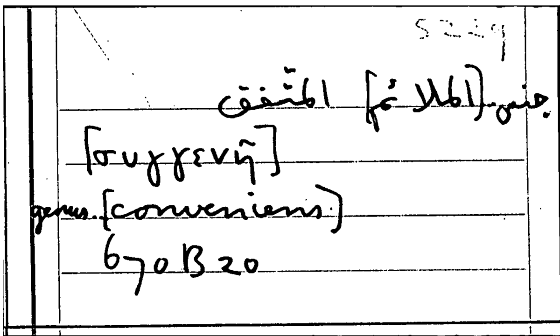 5229
جنس [الملائم] المتّفق
[συγγενῆ]
genus [conveniens]
670 B 20